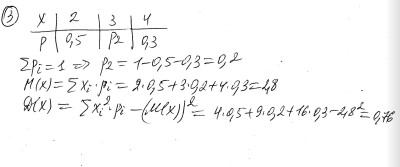 ③ X | 2 | 3 | 4
P | 0,5 | P2 | 0,3
Σpi = 1 => P2 = 1-0,5-0,3 = 0,2
M(X) = Σxi·pi = 2·0,5+3·0,2+4·0,3 = 2,8
D(X) = Σxi²·pi - (M(X))² = 4·0,5+9·0,2+16·0,3-2,8² = 0,76